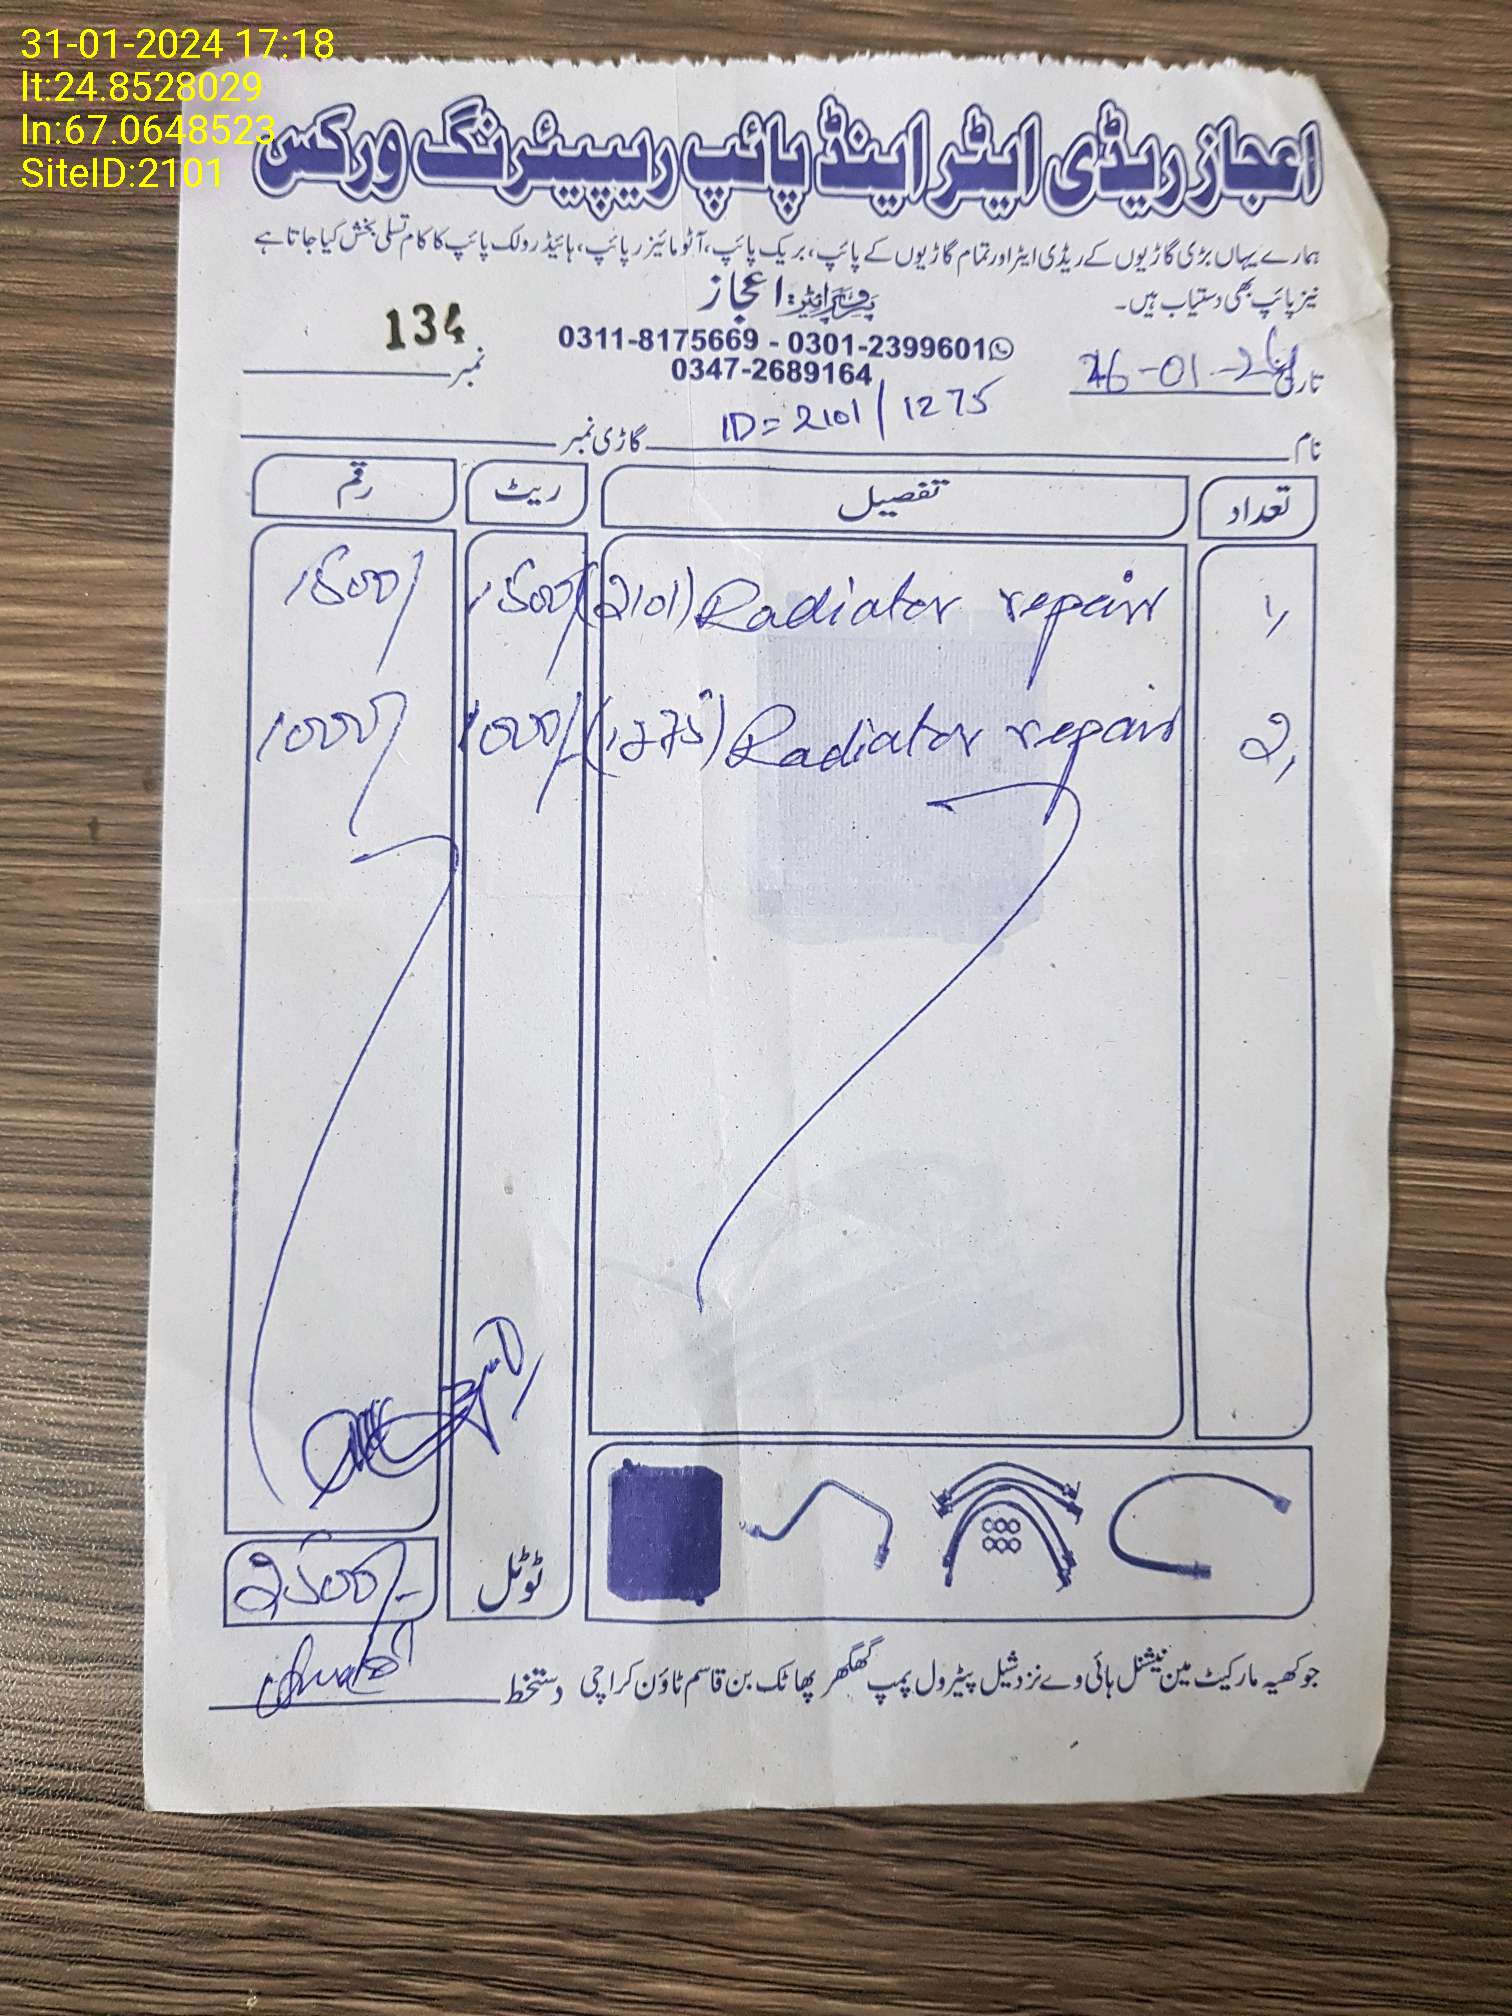 31-01-2024 17:18
lt:24.8528029
ln:67.0648523
SiteID:2101
اعجاز ریڈی ایٹر اینڈ پائپ ریپیئرنگ ورکس
ہمارے یہاں بڑی گاڑیوں کے ریڈی ایٹر اور تمام گاڑیوں کے پائپ، بریک پائپ، آٹو مائیزر پائپ، ہائیڈرولک پائپ کا کام تسلی بخش کیا جاتا ہے
نیز پائپ بھی دستیاب ہیں۔
پروپرائیٹر: اعجاز
0311-8175669 - 0301-2399601
0347-2689164
نمبر 134
تاریخ 26-01-24
ID = 2101 / 1275
نام گاڑی نمبر
تعداد تفصیل ریٹ رقم
1, (2101) Radiator repair 1500/ 1500/
2, (1275) Radiator repair 1000/- 1000/
ٹوٹل 2500/-
جوکھیہ مارکیٹ مین نیشنل ہائی وے نزد شیل پیٹرول پمپ گھگھر پھاٹک بن قاسم ٹاؤن کراچی دستخط